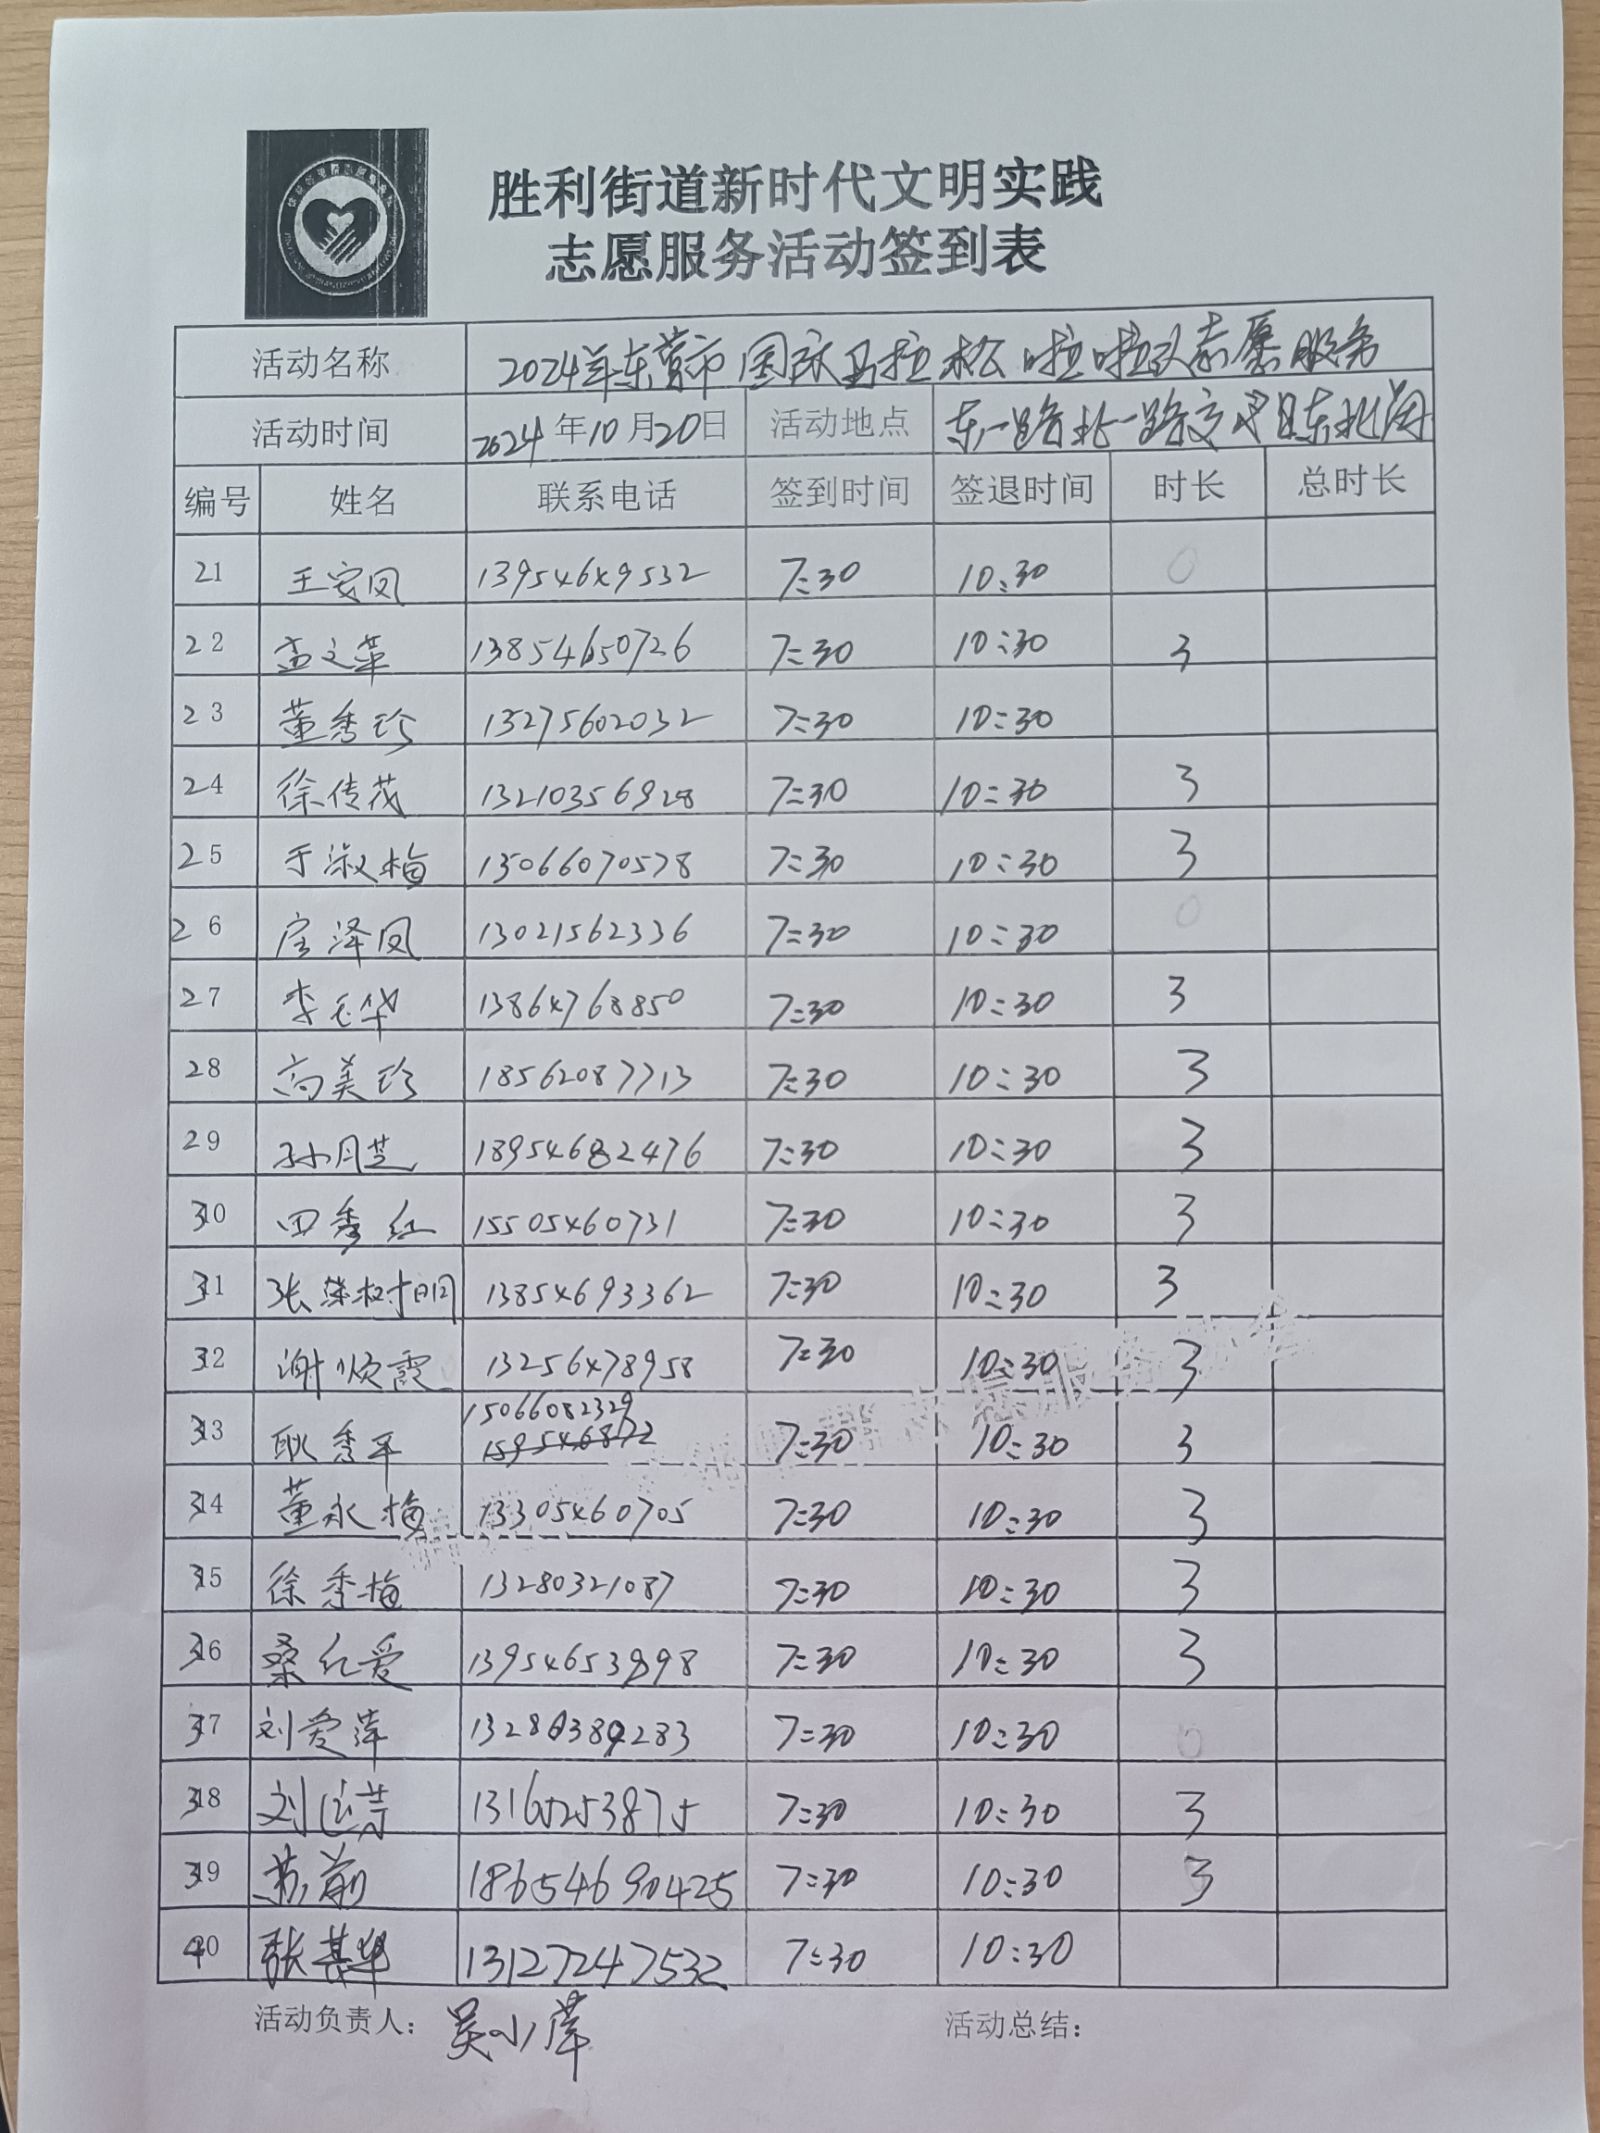 胜利街道新时代文明实践
志愿服务活动签到表
活动名称 2024年东营市国际马拉松啦啦队志愿服务
活动时间 2024年10月20日 活动地点 东一路北一路交叉口东北角
编号 姓名 联系电话 签到时间 签退时间 时长 总时长
21 王安凤 13954649532 7:30 10:30 0
22 孟文革 13854650726 7:30 10:30 3
23 董秀珍 13275602032 7:30 10:30
24 徐传茂 13210356928 7:30 10:30 3
25 于淑梅 15066070578 7:30 10:30 3
26 泽凤 13021562336 7:30 10:30 0
27 李玉华 13864768850 7:30 10:30 3
28 高美珍 18562087713 7:30 10:30 3
29 孙月芝 18954682476 7:30 10:30 3
30 田秀红 15505460731 7:30 10:30 3
31 张 13854693362 7:30 10:30 3
32 谢顺霞 13256478958 7:30 10:30 3
33 耿秀平 15066082329 159546872 7:30 10:30 3
34 董永梅 13305460705 7:30 10:30 3
35 徐秀梅 13280321087 7:30 10:30 3
36 桑红爱 13954653998 7:30 10:30 3
37 刘爱萍 7:30 10:30 0
38 刘 13165253875 7:30 10:30 3
39 苏 18654690425 7:30 10:30 3
40 张其华 13127247532 7:30 10:30
活动负责人：吴小萍 活动总结：